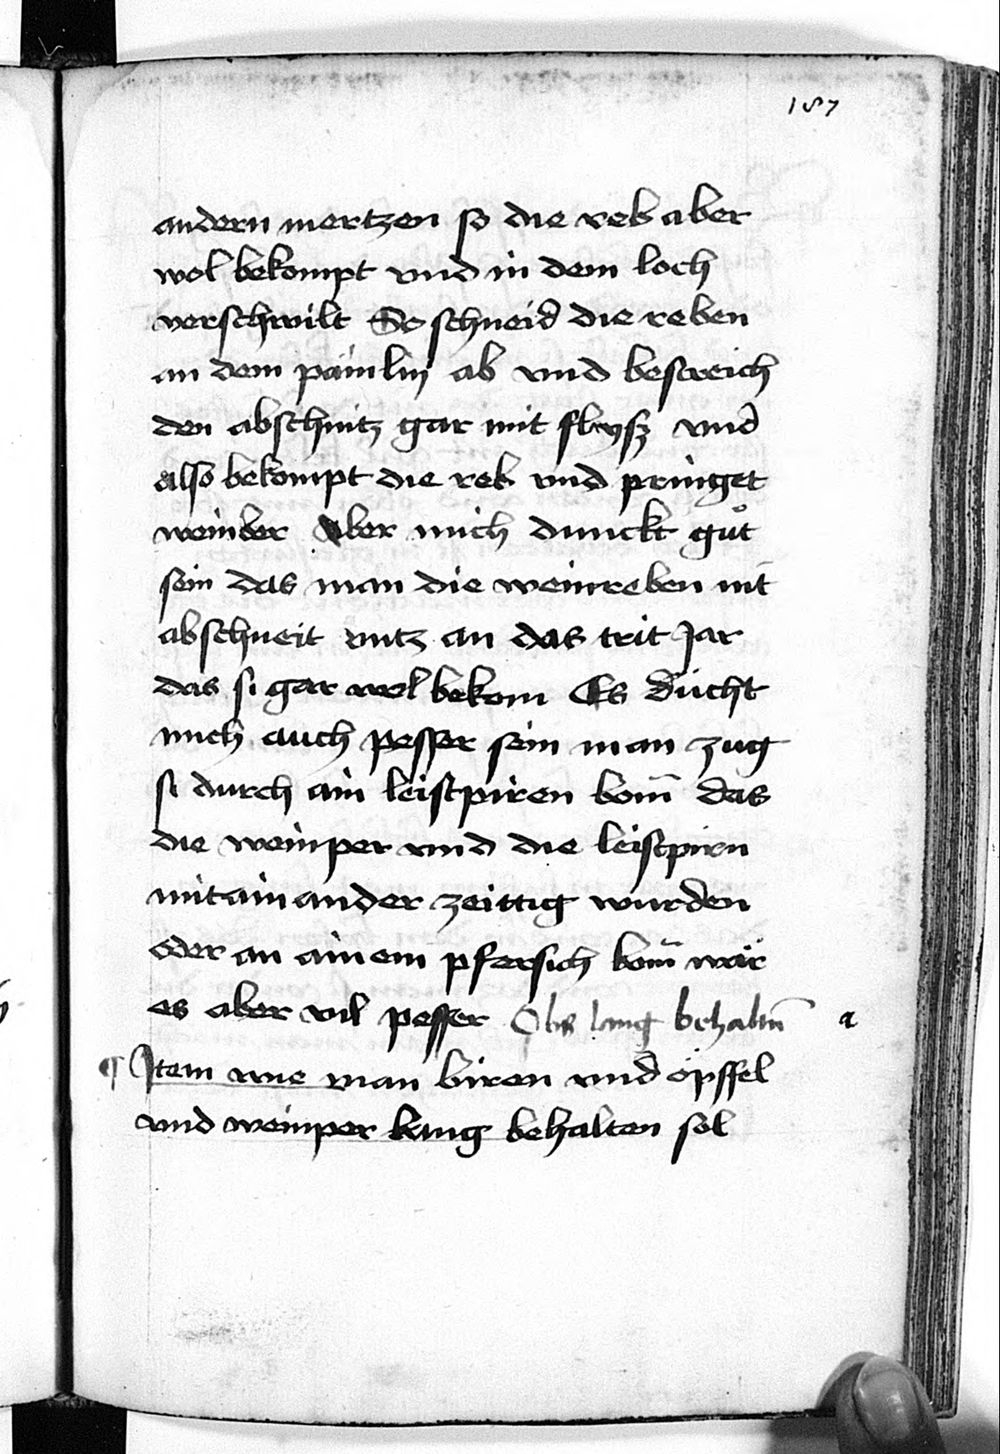 187
andern mertzen so die reb aber
wol bekompt vnd in dem loch
verschwilt So schneid die reben
an dem pämlin ab vnd bestreich
den abschnitz gar mit flysz vnd
also bekompt die reb vnd pringet
weinber Aber mich dunckt guͦt
sein das man die weinreben nit̄
abschneit vntz an das trit Jar
das si gar wol bekom Es dücht
mich auch pesser sein man zug
si durch ain leistpiren bom̄ das
die weinper vnd die leistpirn
mitainander zeittig wurden
oder an ainem pfersich bom̄ wär
es aber vil pesser Obs lang behaltn̄ a
¶ Item wie man biren vnd öpffel
vnd weinper lang behalten sol